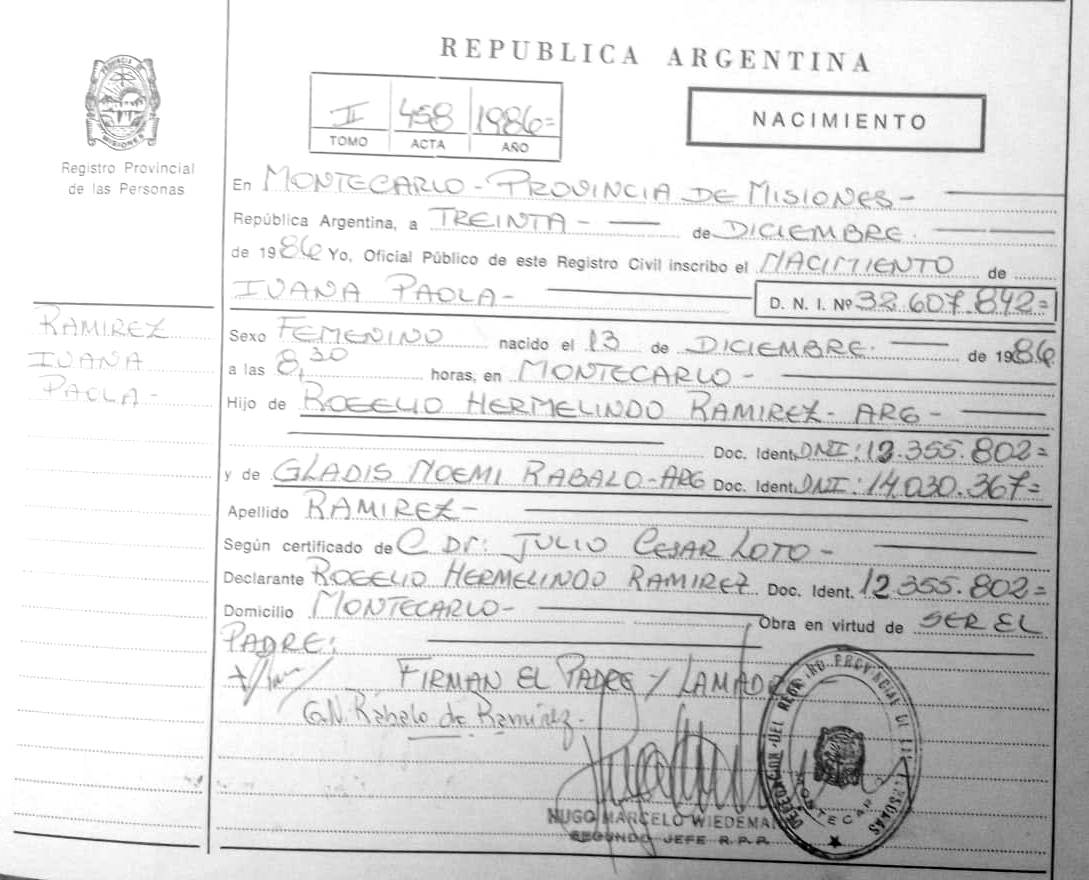 REPUBLICA ARGENTINA
PROVINCIA DE MISIONES
Registro Provincial
de las Personas
II 458 1986=
TOMO ACTA AÑO
NACIMIENTO
En MONTECARLO - PROVINCIA DE MISIONES -
República Argentina, a TREINTA - de DICIEMBRE.
de 1986 Yo, Oficial Público de este Registro Civil inscribo el NACIMIENTO de
IVANA PAOLA - D. N. I. Nº 32.607.842=
RAMIREZ
IVANA
PAOLA -
Sexo FEMENINO nacido el 13 de DICIEMBRE. de 1986
a las 8,30 horas, en MONTECARLO -
Hijo de ROGELIO HERMELINDO RAMIREZ - ARG -
Doc. Ident. DNI: 12.355.802=
y de GLADIS NOEMI RABALO - ARG Doc. Ident. DNI: 14.030.367=
Apellido RAMIREZ -
Según certificado de C Dr: JULIO CESAR LOTO -
Declarante ROGELIO HERMELINDO RAMIREZ Doc. Ident. 12.355.802=
Domicilio MONTECARLO - Obra en virtud de SER EL
PADRE:
FIRMAN EL PADRE Y LA MADRE
G.N. Rabalo de Ramirez.
HUGO MARCELO WIEDEMAN
SEGUNDO JEFE R.P.P.
DELEGACION DEL REG PROVINCIAL DE LAS PERSONAS
MONTECARLO